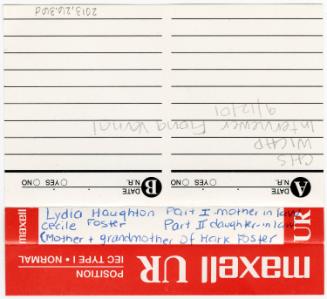 9/12/01
Interviewer Fiona Vernal
WICHP
CHS
B DATE N.R. YES NO
A DATE N.R. YES NO
Lydia Haughton Part I mother in law
Cecile Foster Part II daughter-in-law
(Mother + grandmother of Mark Foster
maxell
UR
POSITION
IEC TYPE I • NORMAL
maxell UR